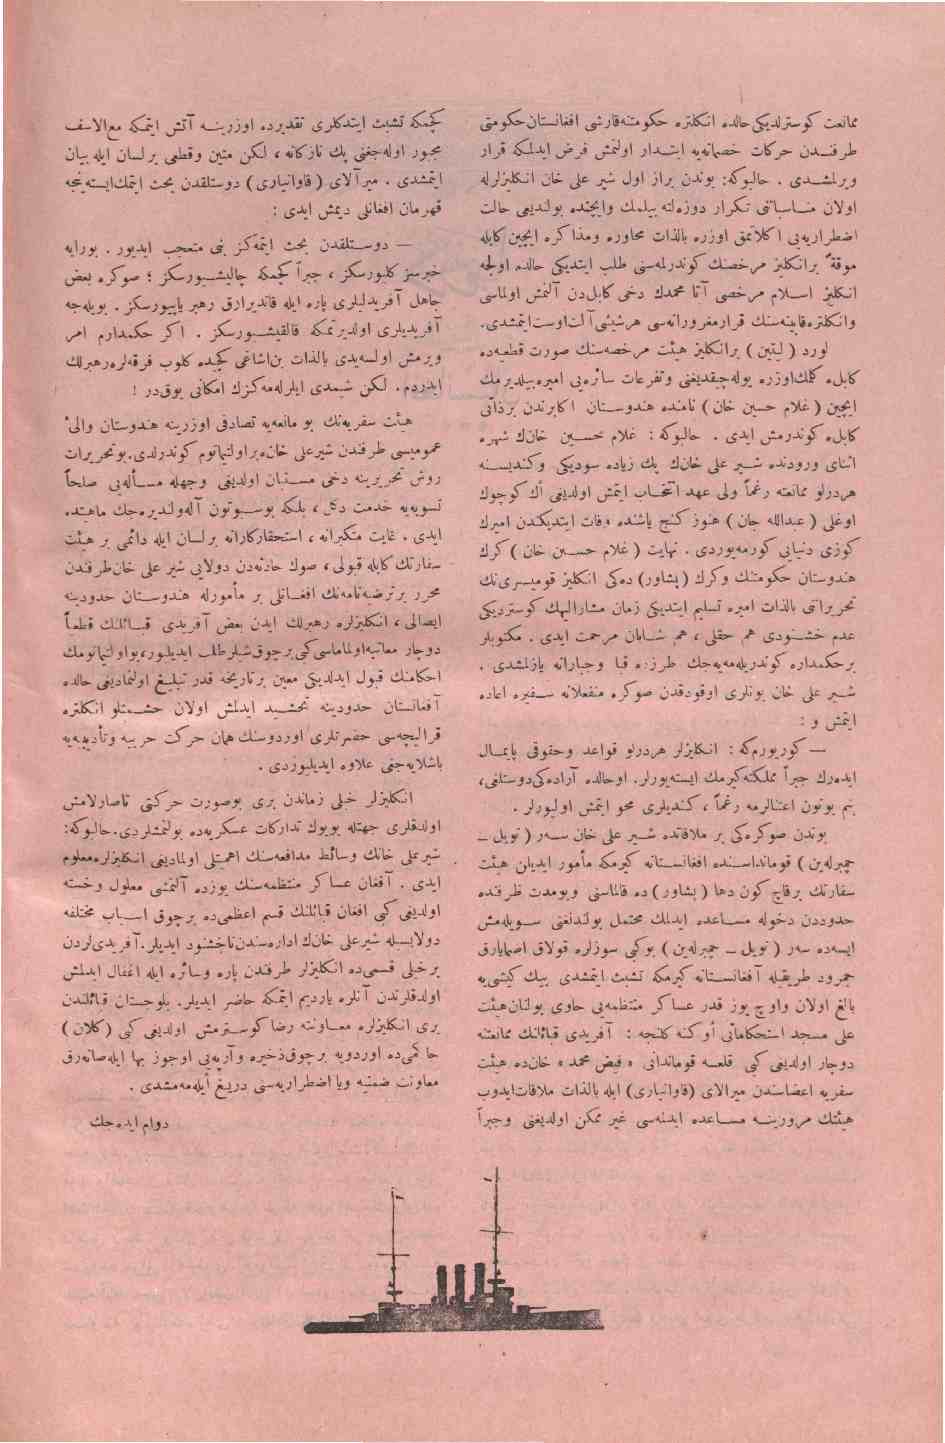 ممانعت كوسترلديكى حالده انكلتره حكومتنه قارشى افغانستان حكومتى
طرفندن حركات خصمانه يه ابتدار اولنمش فرض ايدلمكه قرار
ويرلمشدى . حالبوكه: بوندن براز اول شير على خان انكليزلرله
اولان مناسباتنى تكرار دوزه لته بيلمك وايجنده بولنديغى حالت
اضطراريه يى اكلاتمق اوزره بالذات محاوره ومذاكره ايچين كابله
موقة برانكليز مرخصنك كوندرلمه سنى طلب ايتديكى حالده اولجه
انكليز اسلام مرخصى آتا محمدك دخى كابل دن آلنمش اولماسى
وانكلتره قابينه سنك قرار مغرورانه سى هر شيئى آلت اوست ايتمشدى.
لورد ( ليتين ) برانكليز هيئت مرخصه سنك صورت قطعيه ده
كابله كلمك اوزره يوله چيقديغنى وتفرعات سائره يى اميره بيلديرمك
ايچين ( غلام حسين خان ) نامنده هندوستان اكابرندن برذاتى
كابله كوندرمش ايدى . حالبوكه : غلام حسين خانك شهره
اثناى ورودنده شير على خانك پك زياده سوديكى وكنديسنه
هردرلو ممانعته رغماً ولى عهد انتخاب ايتمش اولديغى اك كوچوك
اوغلى ( عبدالله جان ) هنوز كنج ياشنده وفات ايتديكندن اميرك
كوزى دنيايى كورمه يوردى . نهايت ( غلام حسين خان ) كرك
هندوستان حكومتنك وكرك ( پشاور ) ده كى انكليز قوميسرى نك
تحريراتنى بالذات اميره تسليم ايتديكى زمان مشاراليهك كوسترديكى
عدم خشنودى هم حقلى ، هم شايان مرحمت ايدى . مكتوبلر
برحكمداره كوندريله مه يه جك طرزده قبا وجبارانه يازلمشدى .
شير على خان بونلرى اوقودقدن صوكره منفعلانه سفيره اعاده
ايتمش و :
— كوريورم كه : انكليزلر هردرلو قواعد وحقوقى پايمال
ايده رك جبراً مملكته كيرمك ايسته يورلر. اوحالده آراده كى دوستلغى،
بنم بوتون اعتنالرمه رغماً ، كنديلرى محو ايتمش اوليورلر .
بوندن صوكره كى بر ملاقاتده شير على خان سه ر ( نويل ـ
چمبرله ين ) قومانداسنده افغانستانه كيرمكه مأمور ايديلن هيئت
سفارتك برقاچ كون دها ( پشاور ) ده قالماسنى وبومدت ظرفنده
حدوددن دخوله مساعده ايدلمك محتمل بولندلغنى سويله مش
ايسه ده سه ر ( نويل ـ چمبرله ين ) بوكبى سوزلره قولاق اصمايارق
جمرود طريقيله آفغانستانه كيرمكه تشبث ايتمشدى بيك كيشى يه
بالغ اولان واوچ يوز قدر عساكر منتظمه يى حاوى بولنان هيئت
على مسجد استحكاماتى اوكنه كلنجه : آفريدى قبائلنك ممانعتنه
دوچار اولديغى كبى قلعه قوماندانى « فيض محمد » خان ده هيئت
سفريه اعضاسندن ميرالاى (قاوانيارى) ايله بالذات ملاقات ايدوب
هيئتك مرورينه مساعده ايدلمه سى غير ممكن اولديغنى وجبراً
كچمكه تشبث ايتدكلرى تقديرده اوزرينه آتش ايتمكه مع الاسف
مجبور اوله جغنى پك نازكانه ، لكن متين وقطعى بر لسان ايله بيان
ايتمشدى . ميرآلاى ( قاوانيارى ) دوستلقدن بحث ايتمك ايسته ينجه
قهرمان افغانلى ديمش ايدى :
— دوستلقدن بحث ايتمه كز بنى متعجب ايديور . بورايه
خبرسز كليورسكز ، جبراً كچمكه چاليشيورسكز ؛ صوكره بعض
جاهل آفريديلرى پاره ايله قانديرارق رهبر ياپيورسكز . بويله جه
آفريديلرى اولديرتمكه قالقيشيورسكز . اكر حكمدارم امر
ويرمش اولسه يدى بالذات بن اشاغى كچيده كلوب فرقه لره رهبرلك
ايدردم. لكن شيمدى ايلرله مه كزك امكانى يوق در !
هيئت سفريه نك بو مانعه يه تصادفى اوزرينه هندوستان والئ
عموميسى طرفندن شير على خانه براولتيماتوم كوندرلدى. بوتحريرات
روش تحريرينه دخى مستبان اولديغى وجهله مسأله يى صلحاً
تسويه يه خدمت دكل ، بلكه بوسبوتون آله ولنديره جك ماهيتده
ايدى . غايت متكبرانه ، استحقاركارانه برلسان ايله دائمى بر هيئت
سفارتك كابله قبولى ، صوك حادثه دن دولايى شير على خان طرفندن
محرر برترضيه نامه نك افغانلى بر مأمورله هندوستان حدودينه
ايصالى ، انكليزلره رهبرلك ايدن بعض آفريدى قبائلنك قطعاً
دوچار معاتبه اولماماسى كبى برچوق شيلر طلب ايديليور، بو اولتيماتومك
احكامنك قبول ايدلديكى معين برتاريخه قدر تبليغ اولنماديغى حالده
آفغانستان حدودينه تحشيد ايدلمش اولان حشمتلو انكلتره
قراليچه سى حضرتلرى اوردوسنك همان حركت حربيه وتأديبيه يه
باشلايه جغى علاوه ايديليوردى .
انكليزلر خيلى زماندن برى بوصورت حركتى تاصارلامش
اولدقلرى جهتله بويوك تداركات عسكريه ده بولنمشلردى. حالبوكه:
شير على خانك وسائط مدافعه سنك اهميتلى اولماديغى انكليزلره معلوم
ايدى . آفغان عساكر منتظمه سنك يوزده آلتمشى معلول وخسته
اولديغى كبى افغان قبائلنك قسم اعظمى ده برچوق اسباب مختلفه
دولايسيله شير على خانك اداره سندن ناخشنود ايديلر. آفريدى لردن
برخيلى قسمى ده انكليزلر طرفندن پاره وسائره ايله اغفال ايدلمش
اولدقلرندن آنلره يارديم ايتمكه حاضر ايديلر. بلوجستان قبائلندن
برى انكليزلره معاونته رضا كوسترمش اولديغى كبى ( كلات )
حاكمى ده اوردويه برچوق ذخيره وآرپه يى اوجوز بها ايله صاته رق
معاونت ضمنيه ويا اضطراريه سنى دريغ ايله مه مشدى .
دوام ايده جك